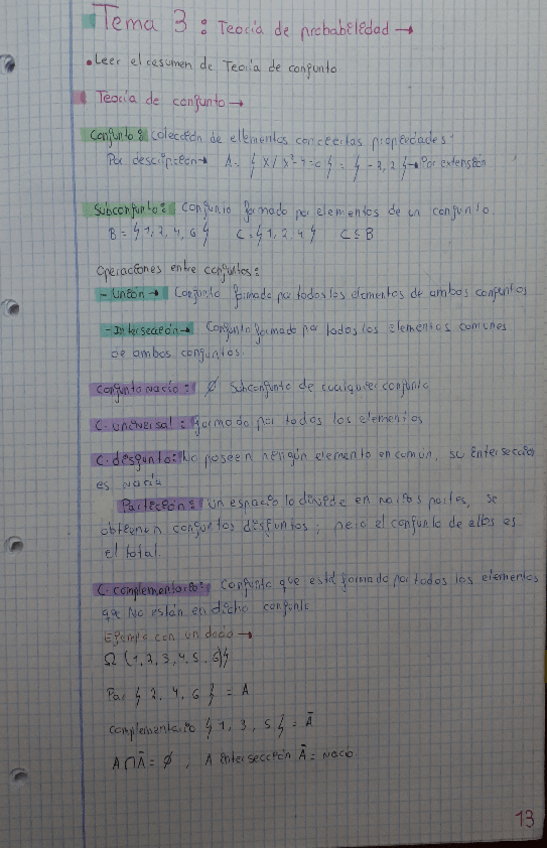 Tema 3: Teoría de probabilidad →
• Leer el resumen de Teoría de conjunto
Teoría de conjunto →
Conjunto: colección de elementos con ciertas propiedades.
Por descripción → A = { X / X²- = 0 } = { -2, 2 } → Por extensión
Subconjunto: Conjunto formado por elementos de un conjunto.
B = { 1, 2, 4, 6 } C = { 1, 2, 4 } C ⊆ B
Operaciones entre conjuntos:
- Unión → Conjunto formado por todos los elementos de ambos conjuntos
- Intersección → Conjunto formado por todos los elementos comunes
de ambos conjuntos.
Conjunto vacío: ∅ Subconjunto de cualquier conjunto
C. universal: formado por todos los elementos
C. disjunto: No poseen ningún elemento en común, su intersección
es vacía
Partición: un espacio lo divide en varias partes, se
obtienen conjuntos disjuntos; pero el conjunto de ellos es
el total.
C. complementario: Conjunto que está formado por todos los elementos
que No están en dicho conjunto
Ejemplo con un dado →
Ω {1, 2, 3, 4, 5, 6}
Par { 2, 4, 6 } = A
Complementario { 1, 3, 5 } = Ā
A ∩ Ā = ∅, A intersección Ā = vacío
13